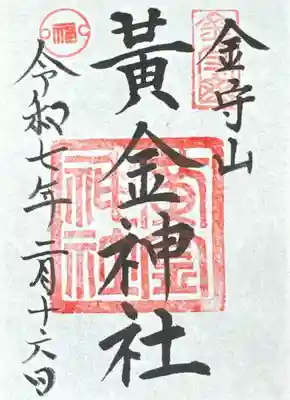 金守山
黃金神社
令和七年二月十六日
福